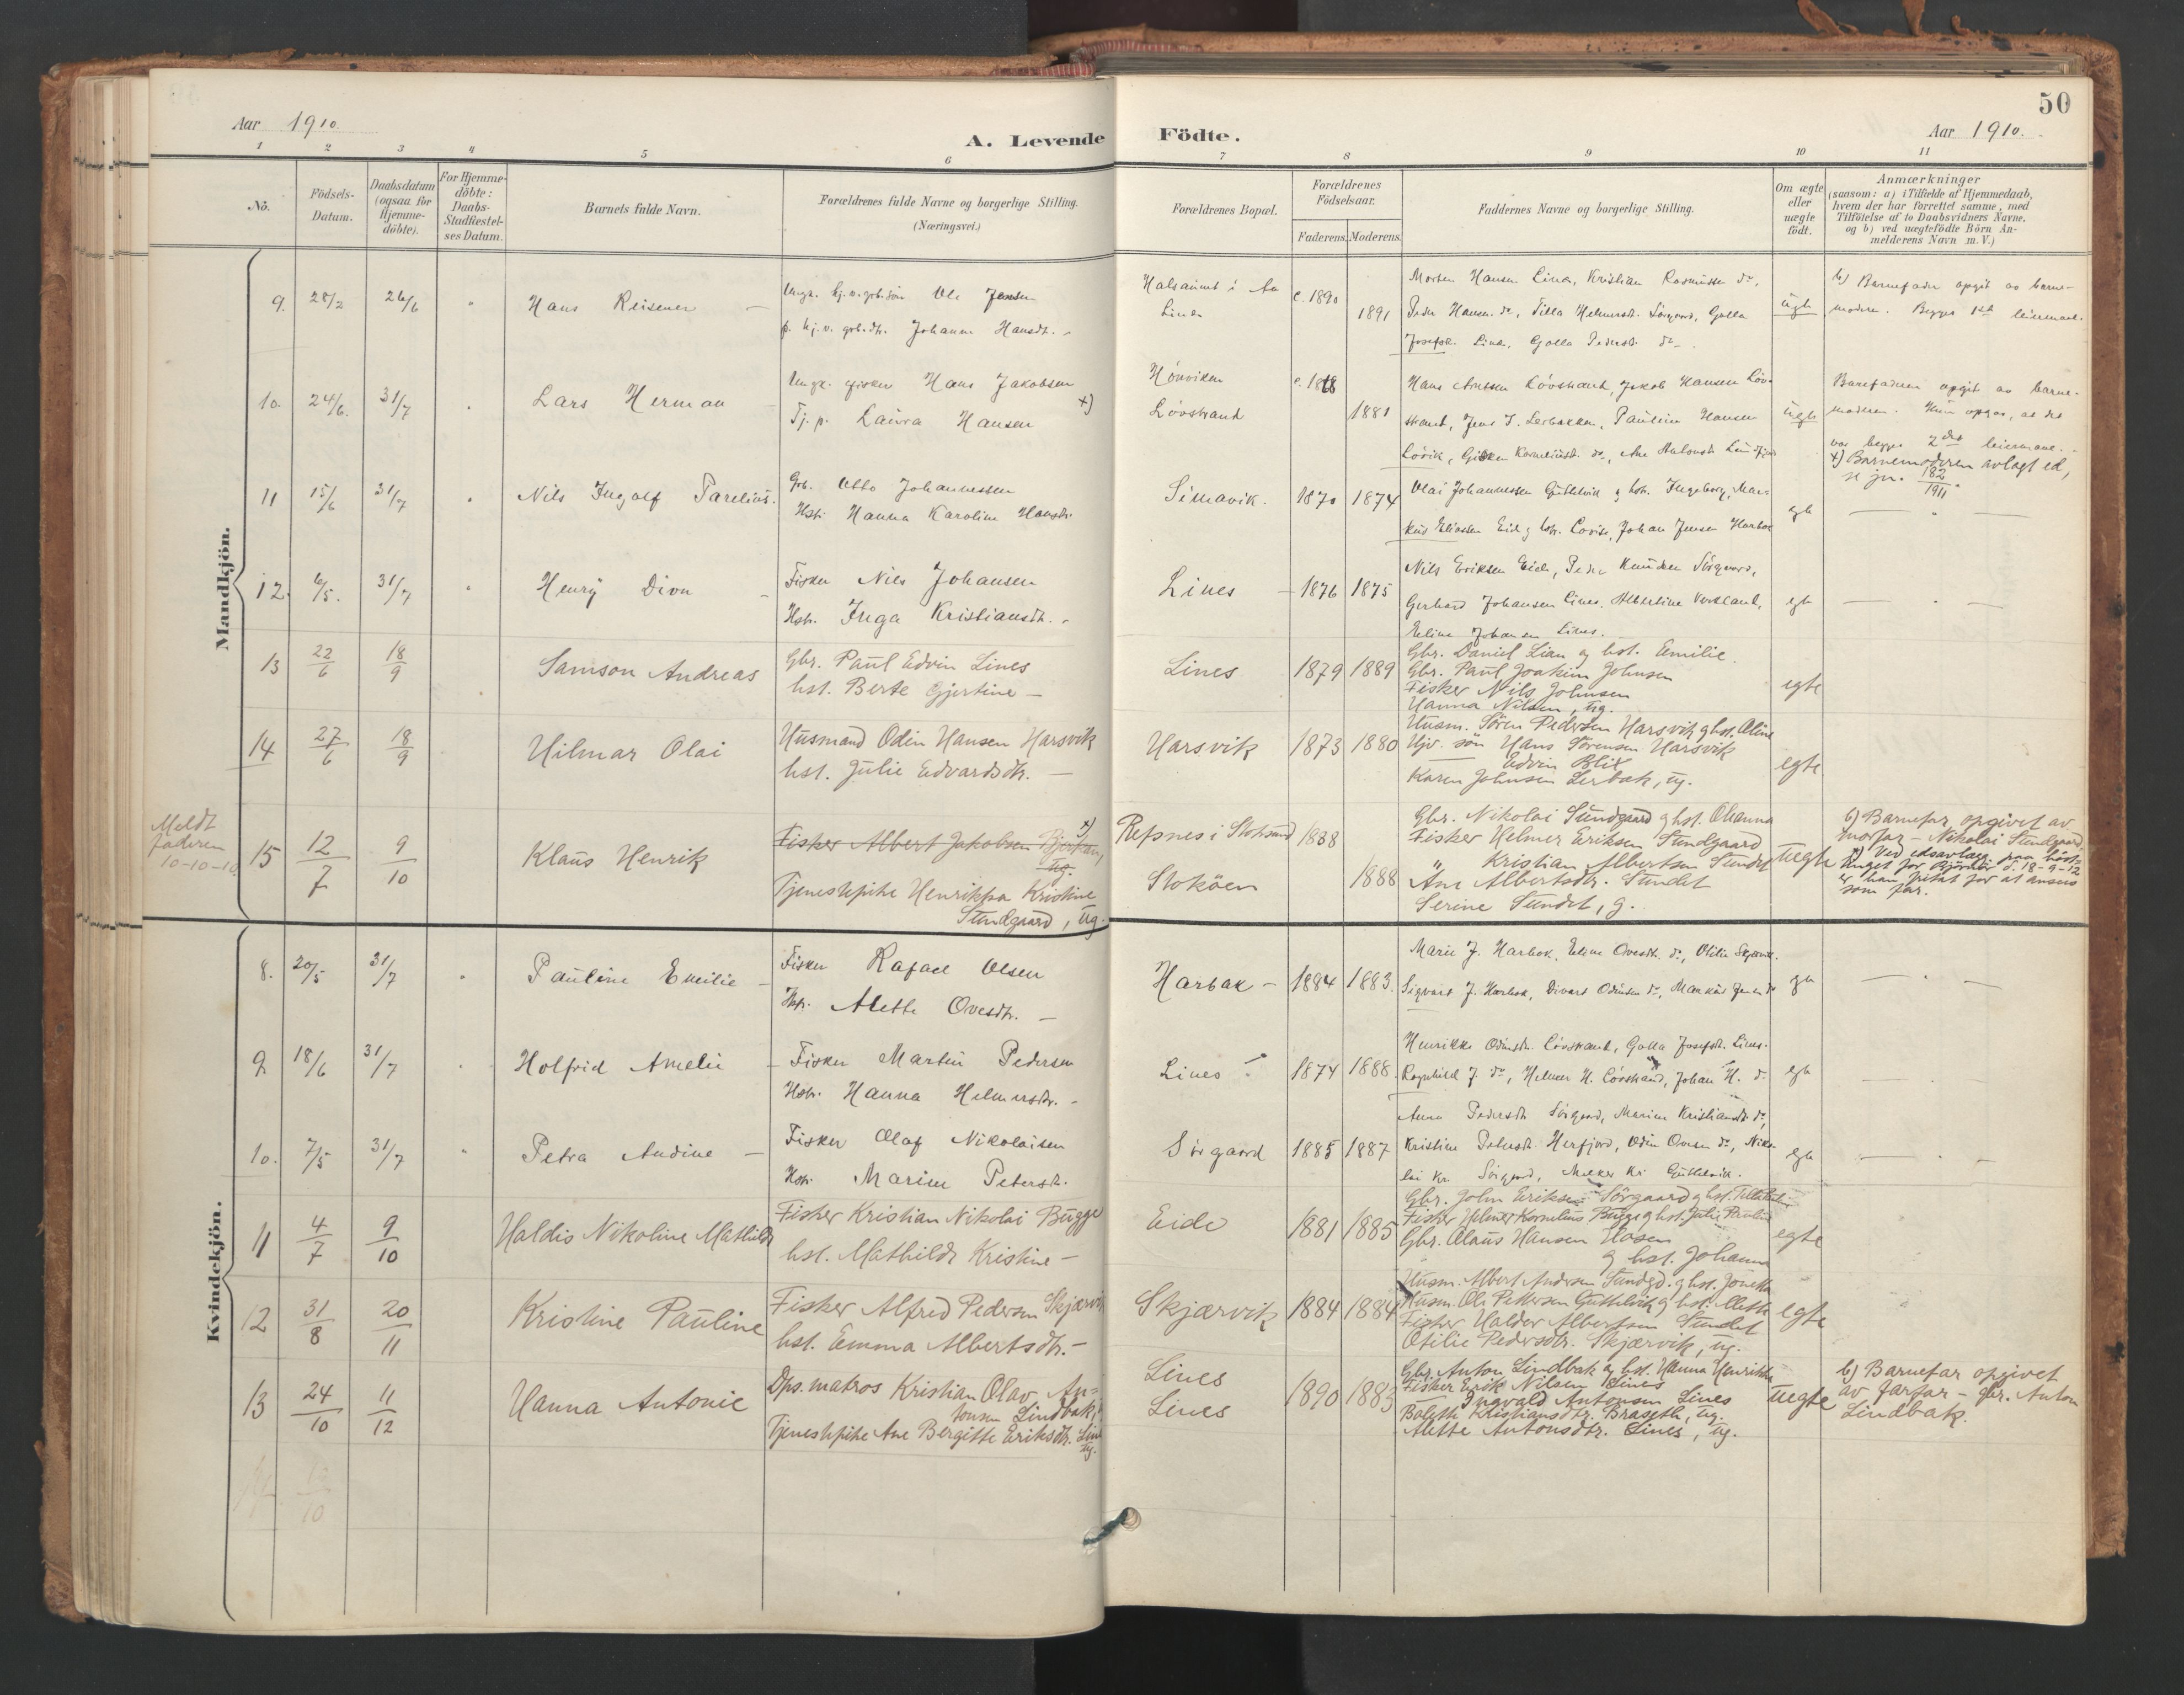 50
Aar 1910.
A. Levende
Födte.
Aar 1910.
1 2 3 4 5 6 7 8 9 10 11
No.
Födsels-
Datum.
Daabsdatum
(ogsaa for
Hjemme-
döbte).
For Hjemme-
döbte:
Daabs-
Stadfæstel-
ses Datum.
Barnets fulde Navn.
Forældrenes fulde Navne og borgerlige Stilling.
(Næringsvei.)
Forældrenes Bopæl.
Forældrenes
Födselsaar.
Faderens. Moderens.
Faddernes Navne og borgerlige Stilling.
Om ægte
eller
uægte
födt.
Anmærkninger
(saasom: a) i Tilfælde af Hjemmedaab,
hvem der har forrettet samme, med
Tilföielse af to Daabsvidners Navne,
og b) ved uægtefödte Börn An-
melderens Navn m. V.)
Mandkjön.
9. 28/2 26/6 Hans Reisener
Ole Jensen
Johanna Hansdt.
Lines
1890 1891
Morten Hansen Lines, Kristian Rasmussen do,
Peder Hansen do, Golla
Josefsdt. Lines, Golla Pedersdt. do
uegte
b) Barnefader opgit av barne-
moderen. Begges 1ste leiermaal.
10. 24/6. 31/7 Lars Herman
Ungk. fisker Hans Jakobsen
Tj. p. Laura Hansen x)
Hönviken
Lövstrand
1881
Jakob Hansen Löv-
strand, Jens J. Lerbakken, Pauline Hansen
uegte
Barnefaderen opgit av barne-
moderen. Hun opgav, at det
var begges 2det leiermaal.
x) Barnemoderen avlagt ed,
se jnr. 182/1911.
11 15/6 31/7 Nils Ingolf Parelius.
Gb. Otto Johannessen
Hst. Hanna Karoline Hansdt.
Simavik. 1870 1874
Olai Johannessen Guttelvik g hst. Ingeborg, Mar-
kus Eliassen Eide g hst. Lovise, Johan Jensen Harbak
egte
12. 6/5. 31/7 Henry Divn
Fisker Nils Johansen
Hst. Inga Kristiansdt.
Lines 1876 1875
Nils Eriksen Eide, Peder Knudsen Sörgaard,
Gerhard Johansen Lines, Albertine
Eline Johansen Lines.
egte
13 22/6 18/9 Samson Andreas
Gbr. Paul Edvin Lines
hst. Berte Gjertine —
Lines 1879 1889
Gbr. Daniel Lian og hst. Emilie.
Gbr. Paul Joakim Johnsen
Fisker Nils Johnsen
Hanna Nilsen, ug.
egte
14 27/6 18/9 Hilmar Olai
Husmand Odin Hansen Harsvik
hst. Julie Edvardsdtr. —
Harsvik 1873 1880
Husm. Sören Pedersen Harsvik g hst. Oline
Hjv. sön Hans Sörensen Harsvik
— Edvin Blix
Karen Johnsen Lerbak, ug.
egte
Meldt
faderen
10-10-10
15 12/7 9/10 Klaus Henrik
Fisker Albert Jakobsen Bjørkan, x)
ug.
Tjenestepike Henrikka Kristine
Sundgaard, ug.
Refsnes i Stoksund 1888
Stokøen 1888
Gbr. Nikolai Sundgaard g hst. Ohanna
Fisker Helmer Eriksen Sundgaard
" Kristian Albertsen Sundet
Ane Albertsdtr. Sundet
Serine Sundet, g.
uegte
b) Barnefar opgivet av
morfar — Nikolai Sundgaard.
x) Ved edsavlæg. paa høst-
tinget for Bjørnør d. 18-9-12
er han fritat for at ansees
som far.
Kvindekjön.
8. 20/5 31/7 Pauline Emilie
Fisker Rafael Olsen
Hst. Alette Ovesdtr. —
Harbak — 1884 1883.
Marie J. Harbak, Eline Ovesdt. do,
Sigvart J. Harbak, Divart Odinsen do, Markus Jensen do
egte
9. 18/6 31/7 Holfrid Amelie
Fisker Martin Pedersen
Hst. Hanna Helmersdtr.
Lines 1874 1888.
Henrikke Odinsdt. Lövstrand, Golla Josefsdt. Lines.
Ragnhild J. do, Helmer H. Lövstrand, Johan H. do
egte
10. 7/5 31/7 Petra Andine
Fisker Olaf Nikolaisen
Hst. Marie Petersdt.
Sörgaard 1885 1887
Anna Pedersdt. Sörgaard, Marine Kristiansdt. do,
Kristine Herfjord, Odin Ovesen do, Niko-
lai Kr. Sörgaard, Guttelvik.
egte
11 4/7 9/10 Haldis Nikoline Mathilde
Fisker Kristian Nikolai Bugge
hst. Mathilde Kristine —
Eide 1881 1885
Gbr. John Eriksen Sörgaard g hst.
Fisker Helmer Kornelius Bugge g hst. Julie Pauline
Gbr. Olaus Hansen Hosen
g hst. Johanna
egte
12 31/8 20/11 Kristine Pauline
Fisker Alfred Pedersen Skjærvik
hst. Emma Albertsdtr. —
Skjærvik 1884 1884
Husm. Albert Andersen Sundgd. g hst. Jonetta
Husm. Ole Pettersen Guttelvik g hst. Mette
Fisker Haldor Albertsen Sundet
Otilie Pedersdtr. Skjærvik, ug.
egte
13 24/10 11/12 Hanna Antonie
Dps. matros Kristian Olav An-
tonsen Lindbak,
Tjenestepike Ane Bergitte Eriksdtr. Lines
ug.
Lines
Lines
1890 1883
Gbr. Anton Lindbak og hst. Hanna Henrikka
Fisker Erik Nilsen Lines
" Ingvald Antonsen Lines
Bolette Kristiansdtr. Braseth, ug.
Alette Antonsdtr. Lines, ug.
uegte
b) Barnefar opgivet
av farfar — gbr. Anton
Lindbak.